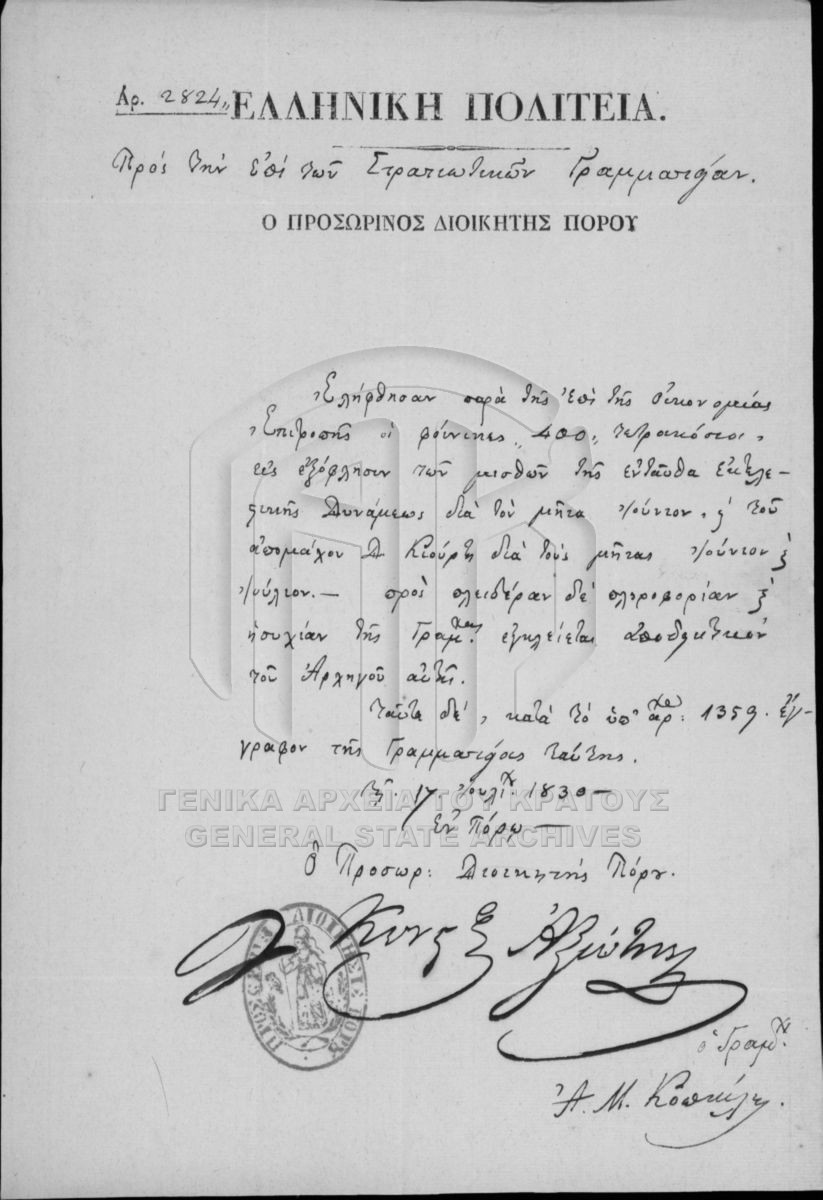 Αρ. 2824,, ΕΛΛΗΝΙΚΗ ΠΟΛΙΤΕΙΑ.
Πρὸς τὴν ἐπὶ τῶν Στρατιωτικῶν Γραμματείαν.
Ο ΠΡΟΣΩΡΙΝΟΣ ΔΙΟΙΚΗΤΗΣ ΠΟΡΟΥ
Ἐλήφθησαν παρὰ τῆς ἐπὶ τῆς Οἰκονομίας
Ἐπιτροπῆς οἱ φοίνικες ,,400,, τετρακόσιοι,
εἰς ἐξόφλησιν τῶν μισθῶν τῆς ἐνταῦθα Ἐκτελε-
στικῆς Δυνάμεως διὰ τὸν μῆνα Ἰούνιον, ϗ τοῦ
ἀπομάχου Δ. Κιούρτη διὰ τοὺς μῆνας Ἰούνιον ϗ
Ἰούλιον.— πρὸς πλειοτέραν δὲ πληροφορίαν ϗ
ἡσυχίαν τῆς Γραμ:τειας ἐγκλείεται ἀποδεικτικὸν
τοῦ Ἀρχηγοῦ αὐτῆς.
Ταῦτα δέ, κατὰ τὸ ὑπ' ἀρ: 1359. ἔγ-
γραφον τῆς Γραμματείας ταύτης.
Τῇ 17 Ἰουλίου 1830—
Ἐν Πόρῳ—
Ὁ Προσωρ: Διοικητὴς Πόρου.
Κυνσ Ἀξιώτης
ὁ Γραμ:
Ἀ. Μ.
ΓΕΝΙΚΑ ΑΡΧΕΙΑ ΤΟΥ ΚΡΑΤΟΥΣ
GENERAL STATE ARCHIVES